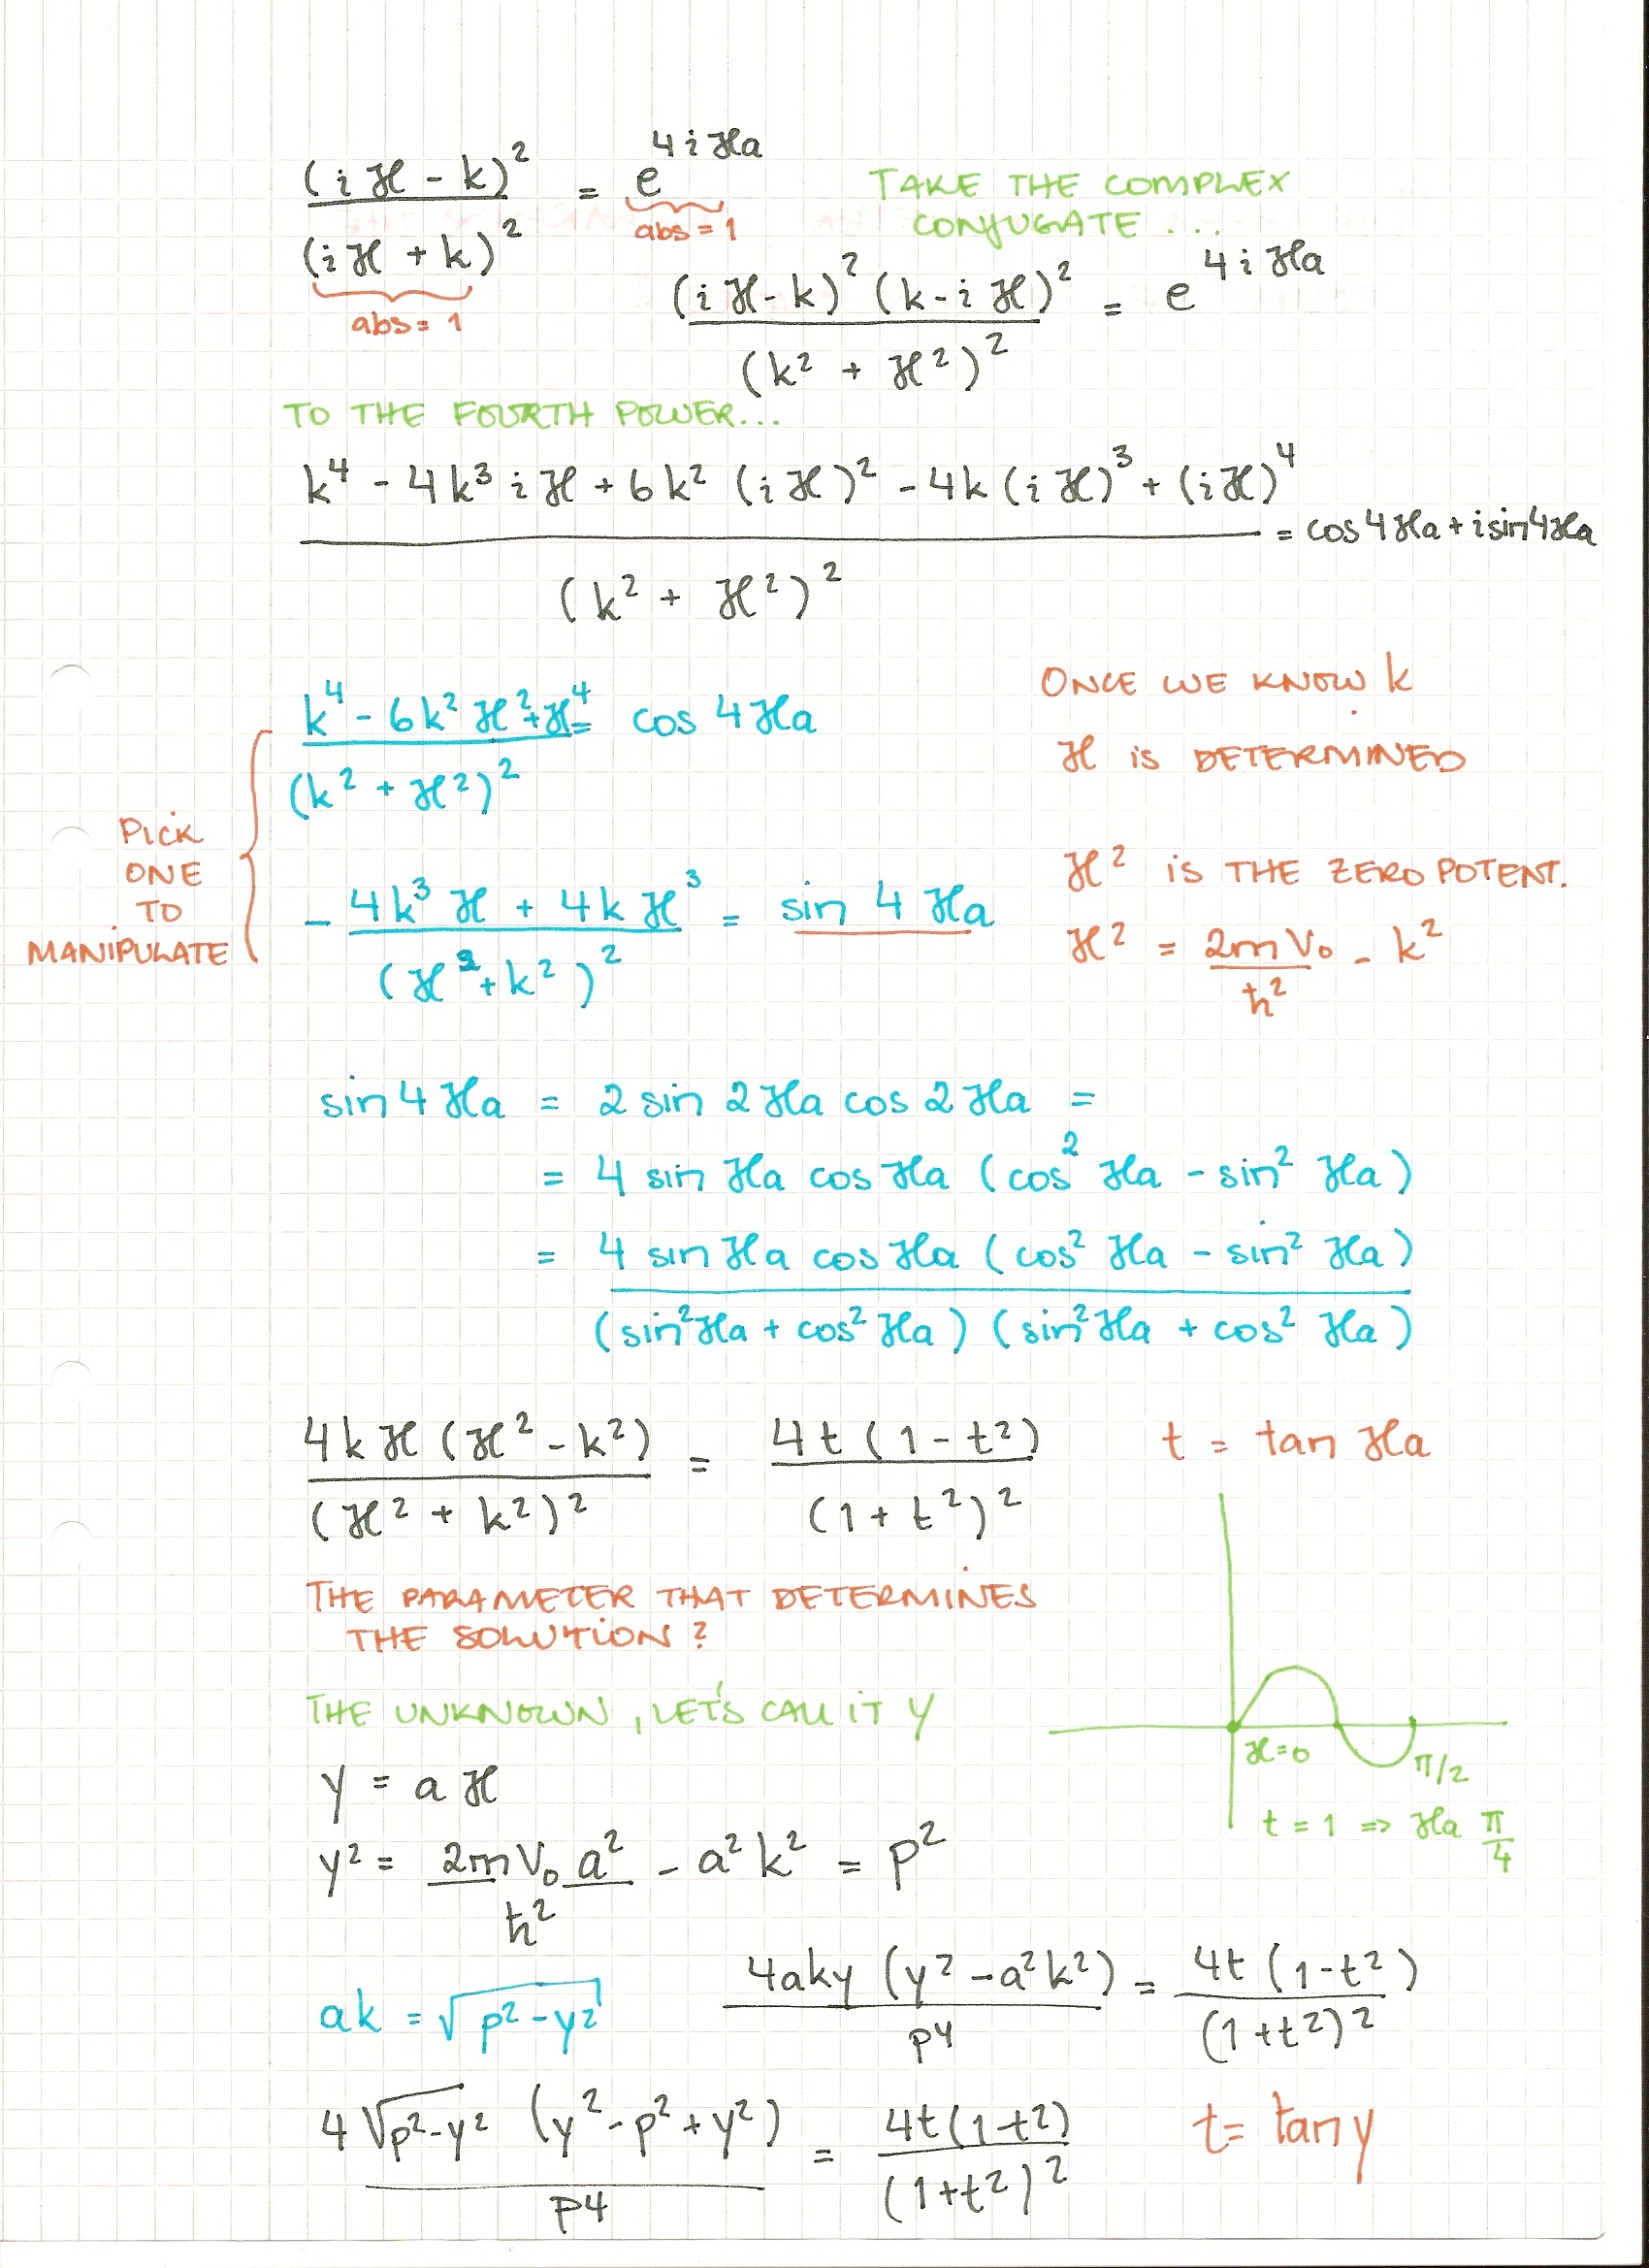 (iϰ - k)² / (iϰ + k)² = e^{4iϰa}
abs = 1
abs = 1
TAKE THE COMPLEX
CONJUGATE ...
(iϰ - k)² (k - iϰ)² / (k² + ϰ²)² = e^{4iϰa}
TO THE FOURTH POWER...
k⁴ - 4k³iϰ + 6k²(iϰ)² - 4k(iϰ)³ + (iϰ)⁴ / (k² + ϰ²)² = cos4ϰa + isin4ϰa
PICK
ONE
TO
MANIPULATE
k⁴ - 6k²ϰ² + ϰ⁴ / (k² + ϰ²)² = cos 4ϰa
- 4k³ϰ + 4kϰ³ / (ϰ² + k²)² = sin 4ϰa
ONCE WE KNOW k
ϰ iS DETERMINED
ϰ² iS THE ZERO POTENT.
ϰ² = 2mV₀ / ħ² - k²
sin4ϰa = 2 sin 2ϰa cos 2ϰa =
= 4 sin ϰa cos ϰa (cos² ϰa - sin² ϰa)
= 4 sin ϰa cos ϰa (cos² ϰa - sin² ϰa) / (sin²ϰa + cos² ϰa) (sin²ϰa + cos² ϰa)
4kϰ(ϰ² - k²) / (ϰ² + k²)² = 4t(1 - t²) / (1 + t²)²
t = tan ϰa
THE PARAMETER THAT DETERMINES
THE SOLUTION?
THE UNKNOWN, LET'S CALL iT y
ϰ=0
π/2
t = 1 => ϰa π/4
y = aϰ
y² = 2mV₀a² / ħ² - a²k² = p²
ak = √(p² - y²)
4aky (y² - a²k²) / p4 = 4t(1-t²) / (1+t²)²
4 √(p²-y²) (y² - p² + y²) / p4 = 4t(1-t²) / (1+t²)²
t = tan y